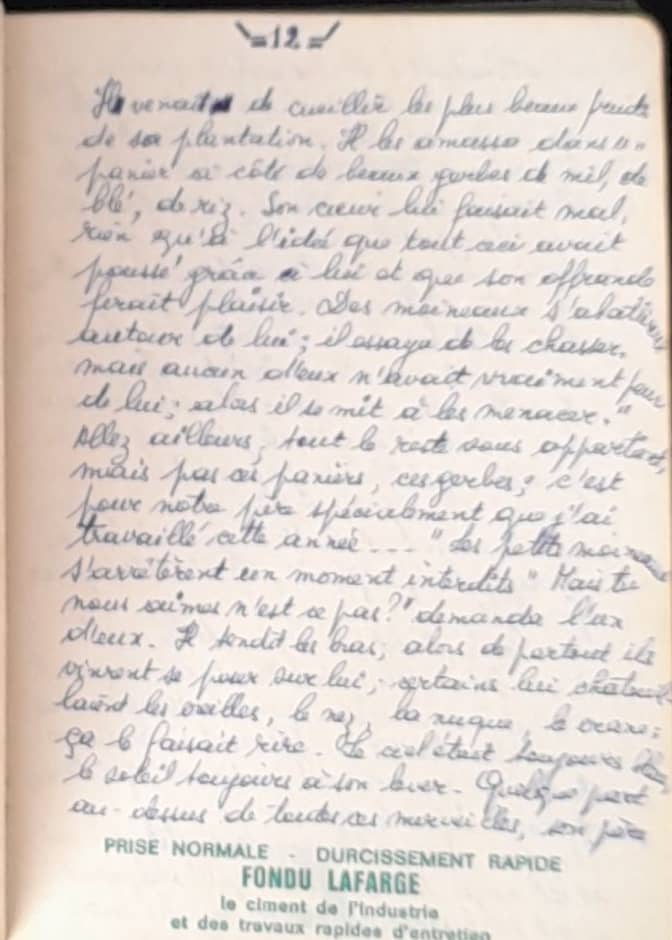 =12=
Il venait de cueillir les plus beaux fruits
de sa plantation. Il les amassa dans un
panier à côté de beaux gerbes de mil, de
blé, de riz. Son cœur lui faisait mal,
rien qu'à l'idée que tout ceci avait
poussé grâce à lui et que son offrande
ferait plaisir. Des moineaux s'abattirent
autour de lui ; il essaya de les chasser,
mais aucun d'eux n'avait vraiment peur
de lui ; alors il se mit à les menacer. "
Allez ailleurs, tout le reste vous appartient,
mais pas ces paniers, ces gerbes ; c'est
pour notre père spécialement que j'ai
travaillé cette année ... " Les petits moineaux
s'arrêtèrent un moment interdits " Mais tu
nous aimes n'est ce pas ? " demanda l'un
d'eux. Il tendit les bras, alors de partout ils
vinrent se poser sur lui ; certains lui chatouil
laient les oreilles, le nez, la nuque, le crane :
ça le faisait rire. Le ciel était toujours
le soleil toujours à son lever. Quelque part
au-dessus de toutes ces merveilles, son père
PRISE NORMALE - DURCISSEMENT RAPIDE
FONDU LAFARGE
le ciment de l'industrie
et des travaux rapides d'entretien